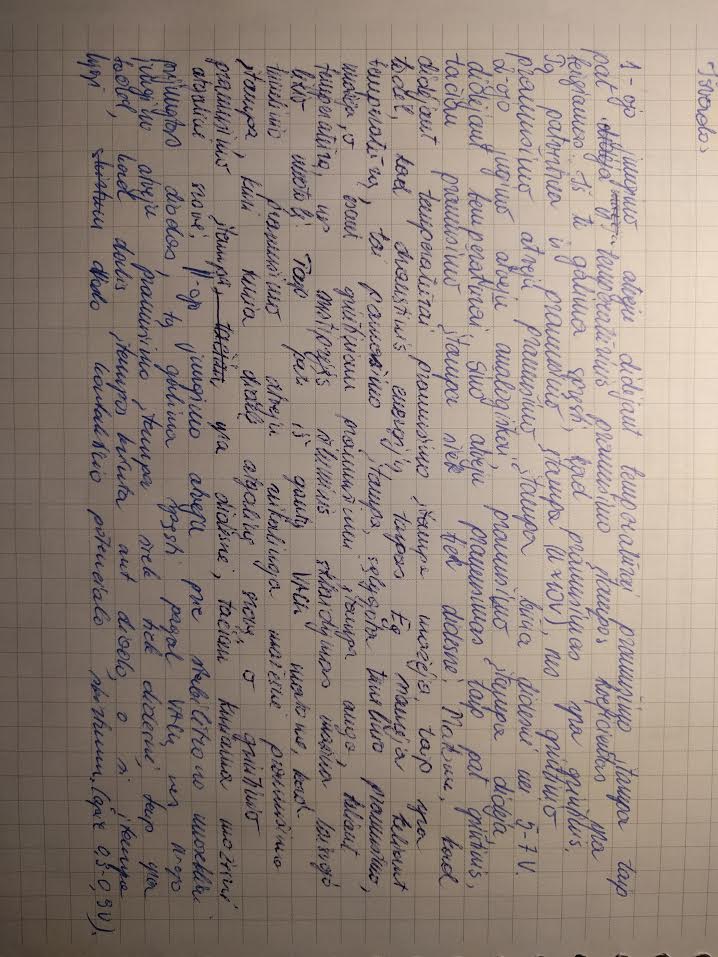 Išvados
1-ojo jungimo atveju didėjant temperatūrai pramušimo įtampa taip
pat didėja ir temperatūrinis pramušimo įtampos koeficientas yra
teigiamas. Iš to galima spręsti, kad pramušimas yra griūtinis.
Tą patvirtina ir pramušimo įtampa (U≈10V), nes griūtinio
pramušimo atveju pramušimo įtampa būna didesnė nei 5-7 V.
2-ojo jugimo atveju analogiškai, pramušimo įtampa didėja,
didėjant temperatūrai. Šiuo atveju pramušimas taip pat griūtinis,
tačiau pramušimo įtampa šiek tiek didesnė. Matome, kad
didėjant temperatūrai pramušimo įtampa mažėja, taip yra
todėl, kad draustinis energijų tarpas Eg mažėja keliant
temperatūrą, tai pramušimo įtampa, sąlygota tunelinio pramušimo,
mažėja, o esant griūtiniam pramušimui įtampa auga, keliant
temperatūrą, nes sustiprėjęs šiluminis sklaidymas mažina laisvojo
kelio Taip pat iš gautų VACh matome, kad
tunelinio pramušimo atveju reikalinga mažesnė pramušimo
įtampa, kuri kuria didelę atgalinę srovę, o griūtinio
pramušimo įtampa tačiau yra didesnė, tačiau kuriama mažesnė
atgalinė srovė. II-ojo jungimo atveju prie stabilitrono nuosekliai
prijungtas diodas, tą galima spręsti pagal VACh, nes II-ojo
jungimo atveju pramušimo įtampa šiek tiek didesnė, taip yra
todėl, kad dalis įtampos krinta ant diodo, o ši įtampa
lygi skirtum diodo kontaktinio potencialo skirtumui (apie 0,5-0,9V).